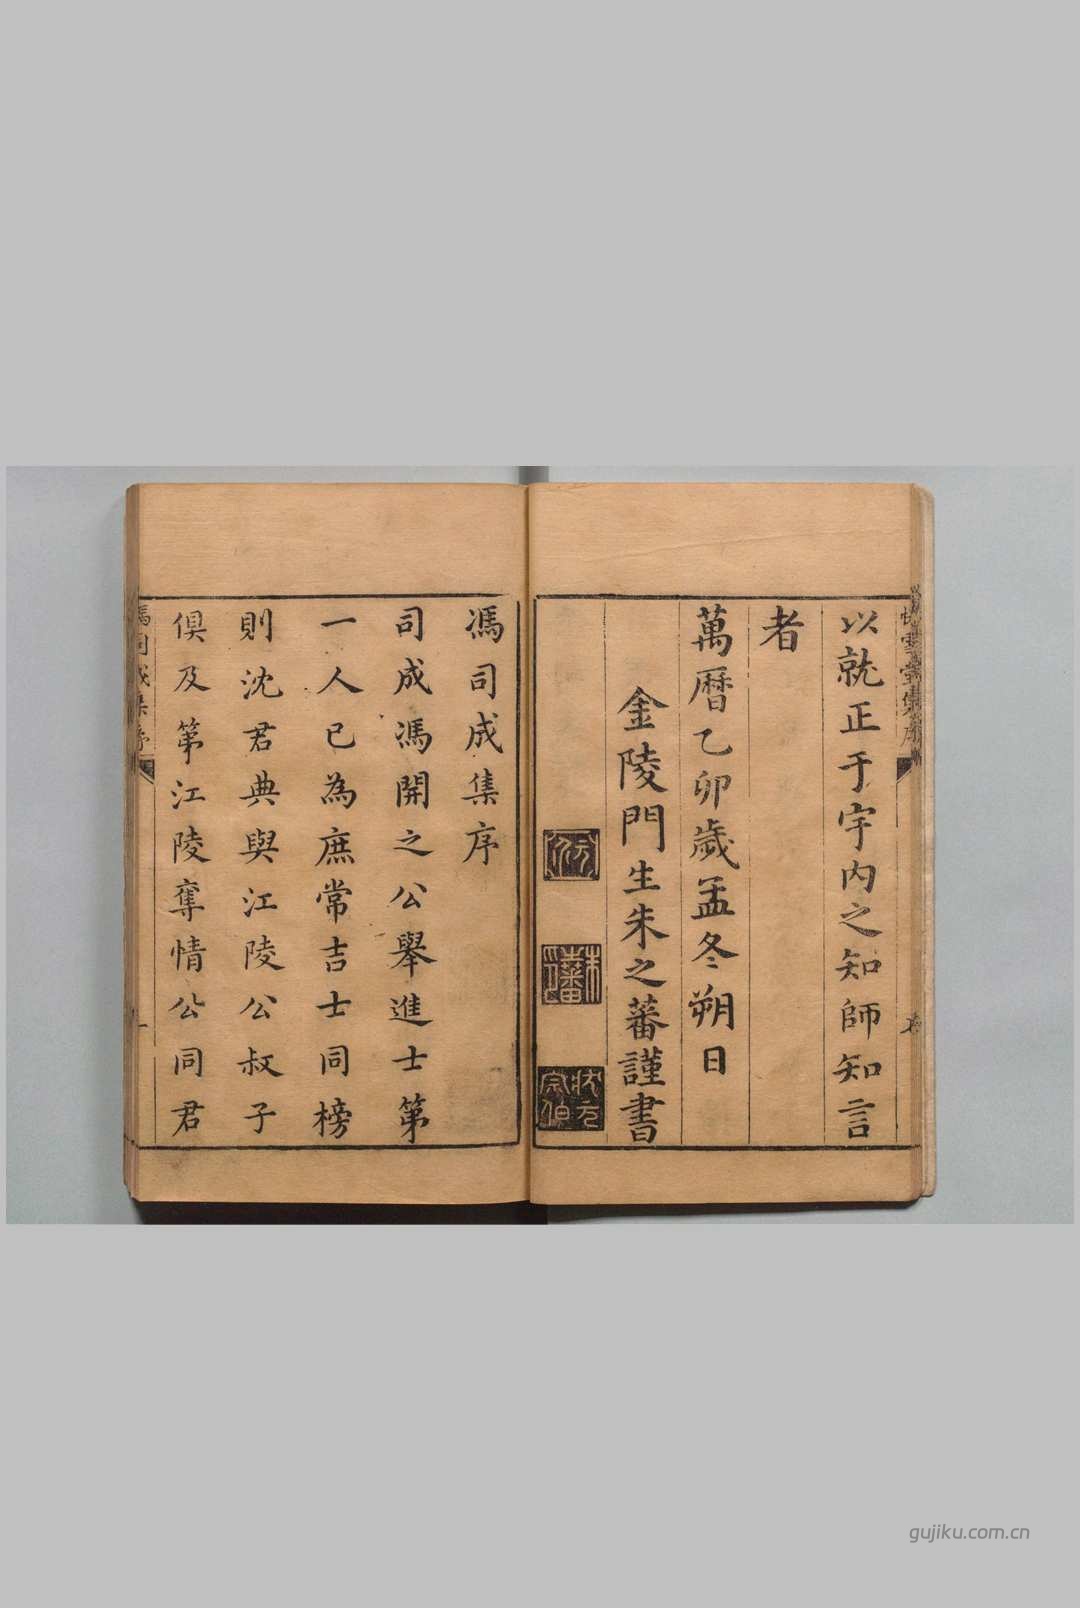 以就正于宇内之知師知言
者
萬曆乙卯歲孟冬朔日
金陵門生朱之蕃謹書
朱之蕃印
狀元宗伯
馮司成集序
司成馮開之公舉進士第
一人已為庶常吉士同榜
則沈君典與江陵公叔子
俱及第江陵奪情公同君
馮司成集序
gujiku.com.cn